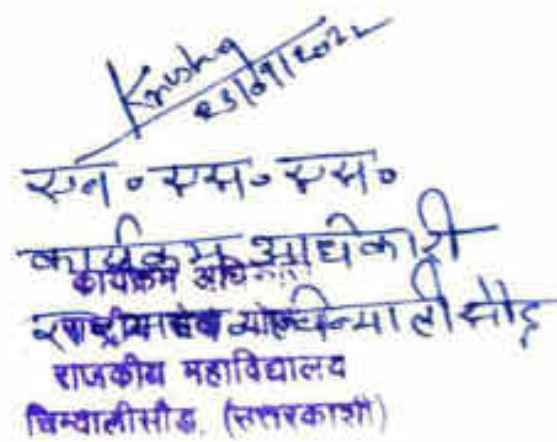 Krishna
23/09/2022
एन० एस० एस०
कार्यक्रम अधिकारी
कार्यक्रम अधिकारी
चिन्यालीसौड़
राष्ट्रीय सेवा योजना
राजकीय महाविद्यालय
चिन्यालीसौड़, (उत्तरकाशी)